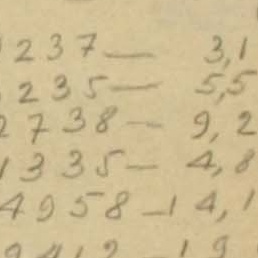 1237 — 3,1
235 — 5,5
2738 — 9,2
1335 — 4,8
4958 — 14,1